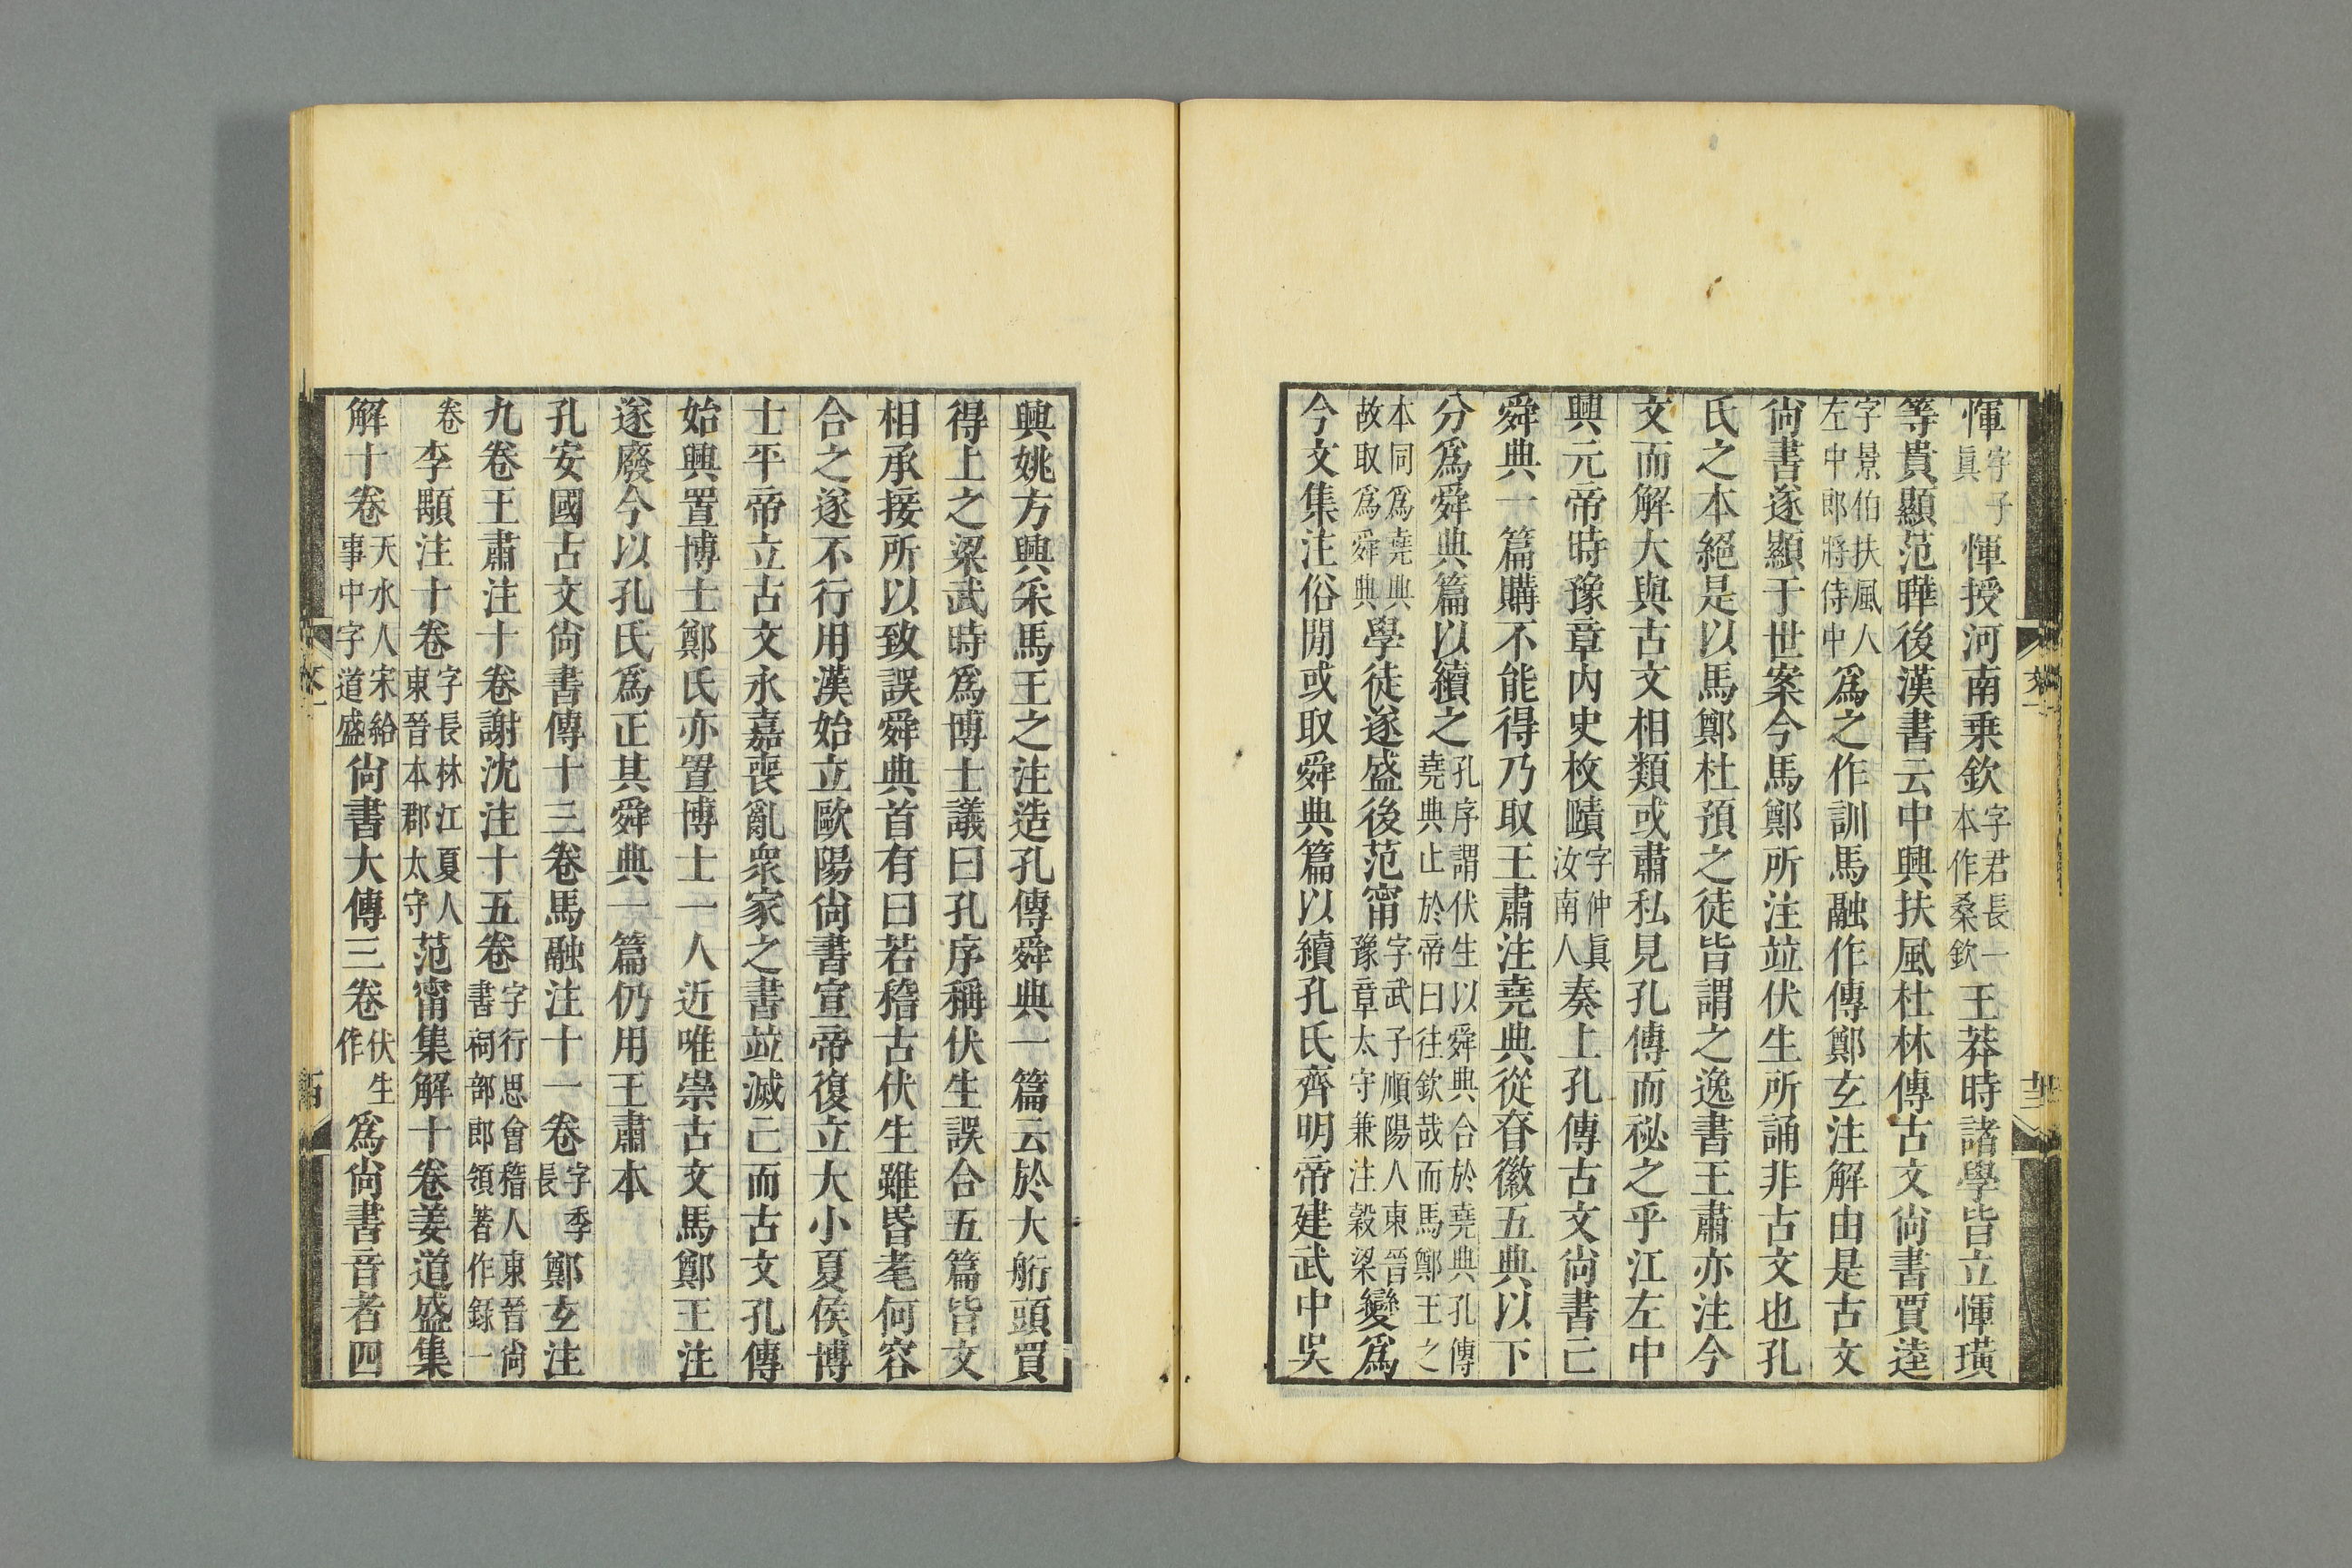 惲字子眞惲授河南乗欽字君長一本作桑欽王莽時諸學皆立惲璜
等貴顯范曄後漢書云中興扶風杜林傳古文尙書賈逵
字景伯扶風人左中郎將侍中爲之作訓馬融作傳鄭玄注解由是古文
尙書遂顯于世案今馬鄭所注竝伏生所誦非古文也孔
氏之本絕是以馬鄭杜預之徒皆謂之逸書王肅亦注今
文而解大與古文相類或肅私見孔傳而祕之乎江左中
興元帝時豫章內史枚賾字仲眞汝南人奏上孔傳古文尙書亡
舜典一篇購不能得乃取王肅注堯典從眘徽五典以下
分爲舜典篇以續之孔序謂伏生以舜典合於堯典孔傳堯典止於帝曰往欽哉而馬鄭王之
本同爲堯典故取爲舜典學徒遂盛後范甯字武子順陽人東晉豫章太守兼注穀梁變爲
今文集注俗閒或取舜典篇以續孔氏齊明帝建武中吳
興姚方興采馬王之注造孔傳舜典一篇云於大𦨵頭買
得上之梁武時爲博士議曰孔序稱伏生誤合五篇皆文
相承接所以致誤舜典首有曰若稽古伏生雖昏耄何容
合之遂不行用漢始立歐陽尙書宣帝復立大小夏侯博
士平帝立古文永嘉喪亂衆家之書竝滅亡而古文孔傳
始興置博士鄭氏亦置博士一人近唯崇古文馬鄭王注
遂廢今以孔氏爲正其舜典一篇仍用王肅本
孔安國古文尙書傳十三卷馬融注十一卷字季長鄭玄注
九卷王肅注十卷謝沈注十五卷字行思會稽人東晉尙書祠部郎領著作錄一
卷李顒注十卷字長林江夏人東晉本郡太守范甯集解十卷姜道盛集
解十卷天水人宋給事中字道盛尙書大傳三卷伏生作爲尙書音者四